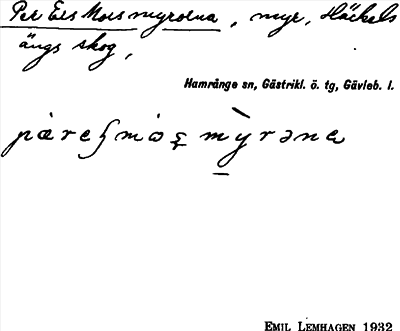 Per Ers Mors myrorna, myr, Häckels
ängs skog,
Hamrånge sn, Gästrikl. ö. tg, Gävleb. l.
EMIL LEMHAGEN 1932